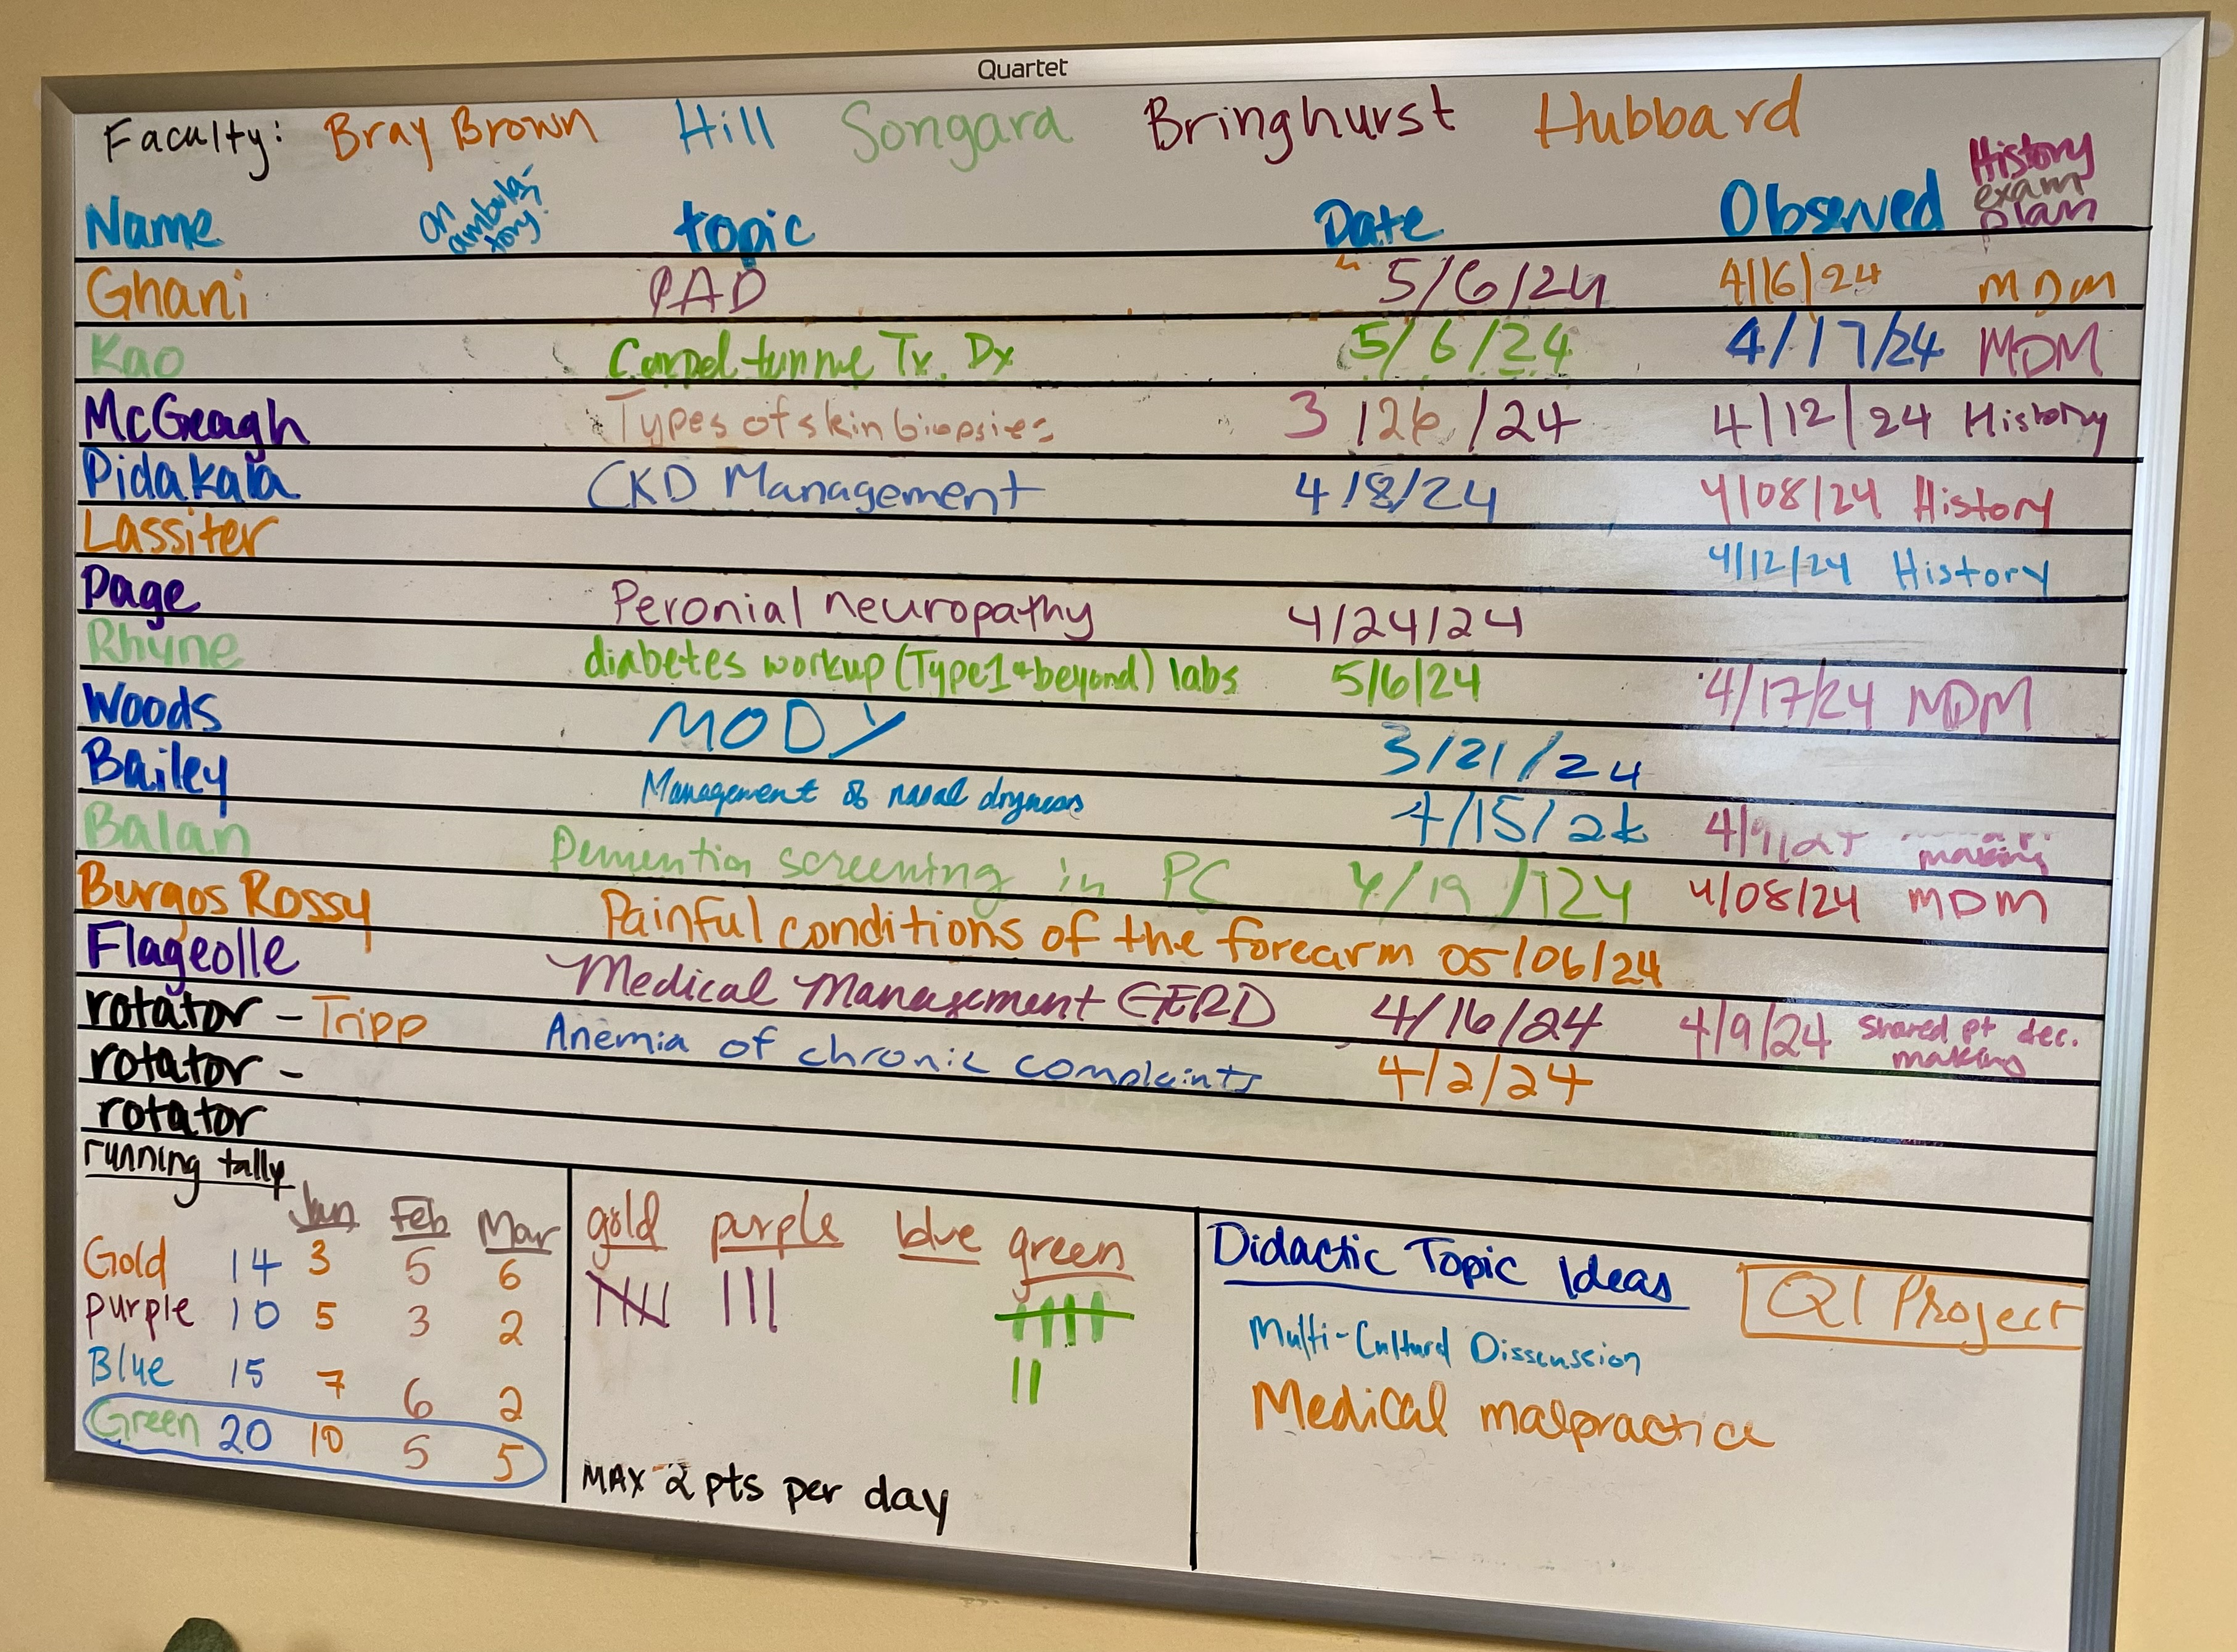 Quartet
Faculty: Bray Brown Hill Songara Bringhurst Hubbard
Name on ambula-tory. topic Date Observed History exam plan
Ghani PAD 5/6/24 4/16/24 MDM
Kao Carpel tunnel Tx. Dx 5/6/24 4/17/24 MDM
McGeagh Types of skin biopsies 3/26/24 4/12/24 History
Pidakala CKD Management 4/8/24 4/08/24 History
Lassiter 4/12/24 History
Page Peronial neuropathy 4/24/24
Rhyne diabetes workup (Type1+beyond) labs 5/6/24 4/17/24 MDM
Woods MODY 3/21/24
Bailey Management of nasal dryness 4/15/24 4/9/24 making
Balan Demention screening in PC 4/19/124 4/08/24 MDM
Burgos Rossy Painful conditions of the forearm 05/06/24
Flageolle Medical Management GERD 4/16/24 4/9/24 shared pt dec. making
rotator - Tripp Anemia of chronic complaints 4/2/24
rotator -
rotator
running tally
Jan Feb Mar
Gold 14 3 5 6
purple 10 5 3 2
Blue 15 7 6 2
Green 20 10 5 5
gold purple blue green
MAX 2 pts per day
Didactic Topic Ideas
QI Project
Multi-Cultural Disscussion
Medical malpractice